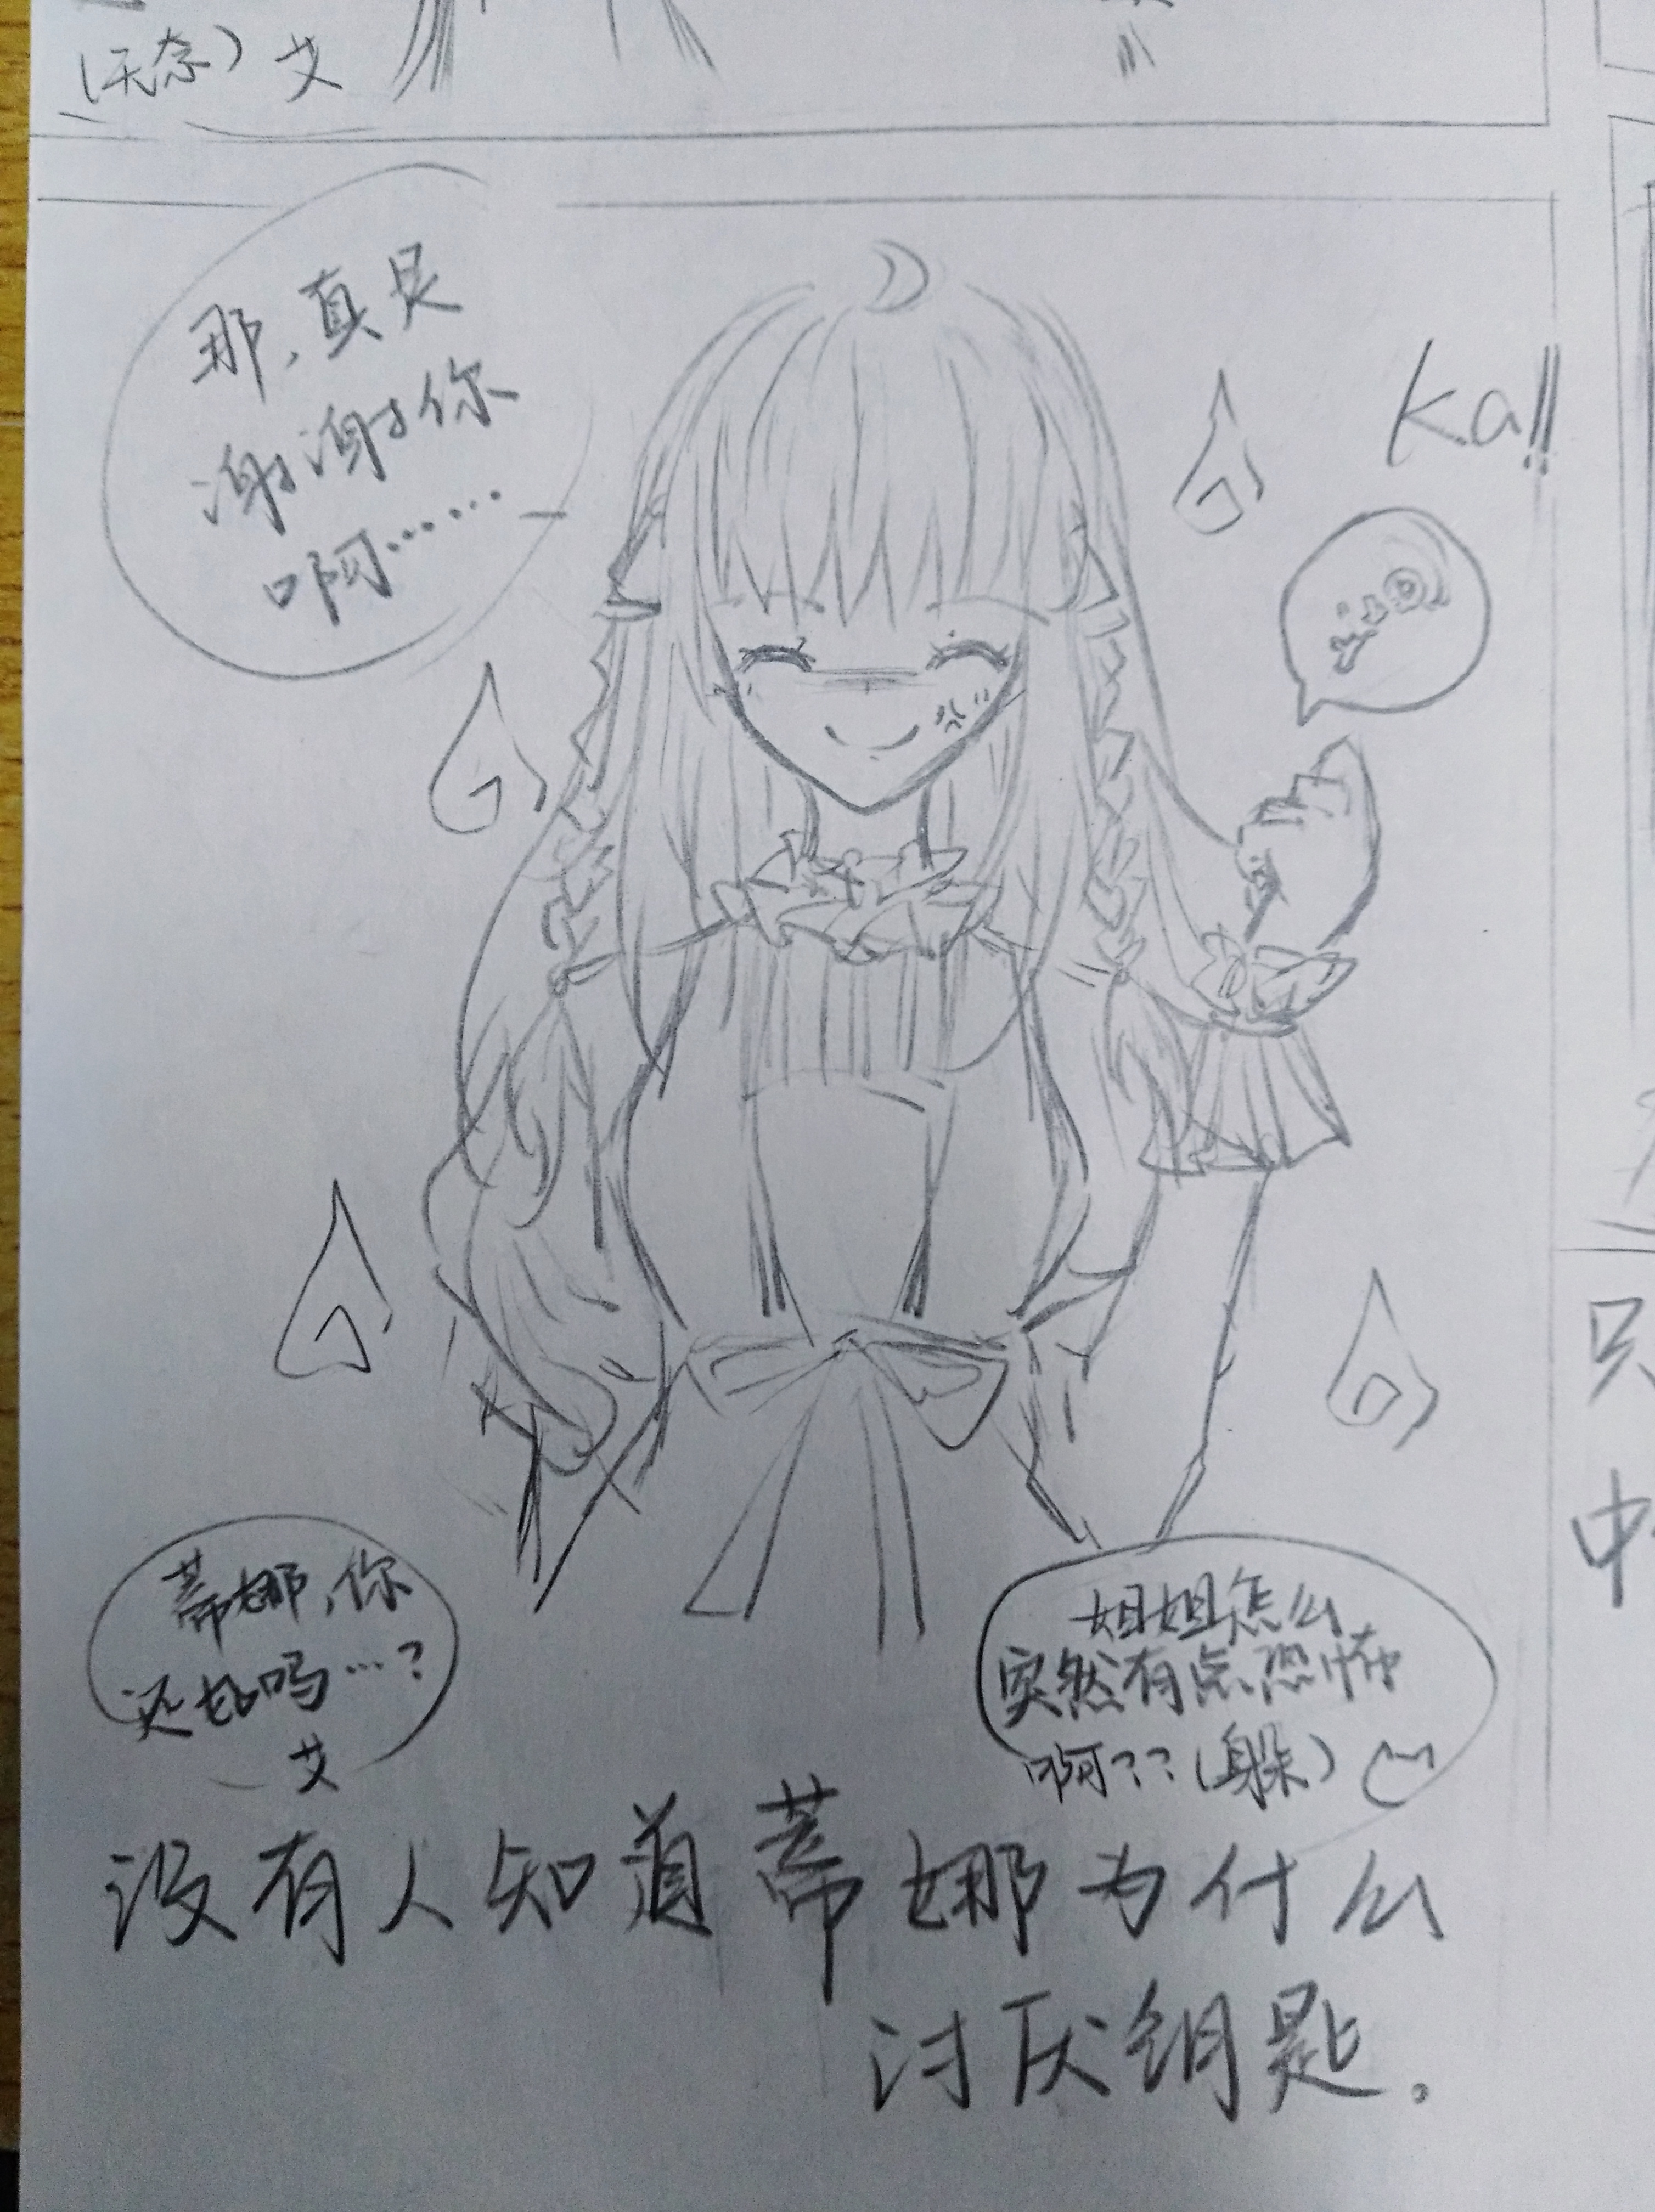 (无奈) 艾
那，真是
谢谢你
啊……
Ka!!
蒂娜，你
还好吗…？
艾
姐姐怎么
突然有点恐怖
啊？？(躲)
没有人知道蒂娜为什么
讨厌钥匙。
只
中